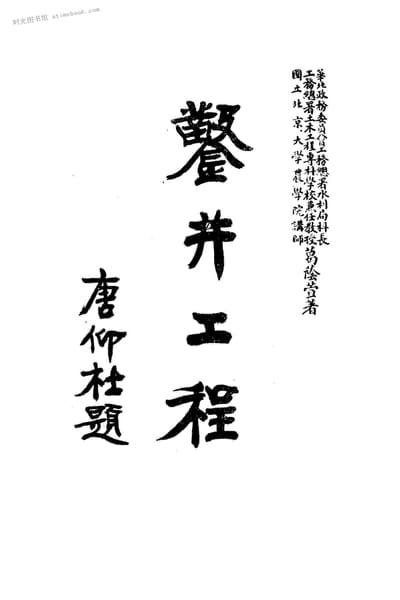 时光图书馆 · atimebook.com
華北政務委員會工務總署水利局科長
工務總署土木工程專科學校兼任教授
國立北京大學農學院講師
葛蔭萱著
鑿井工程
唐仰杜題